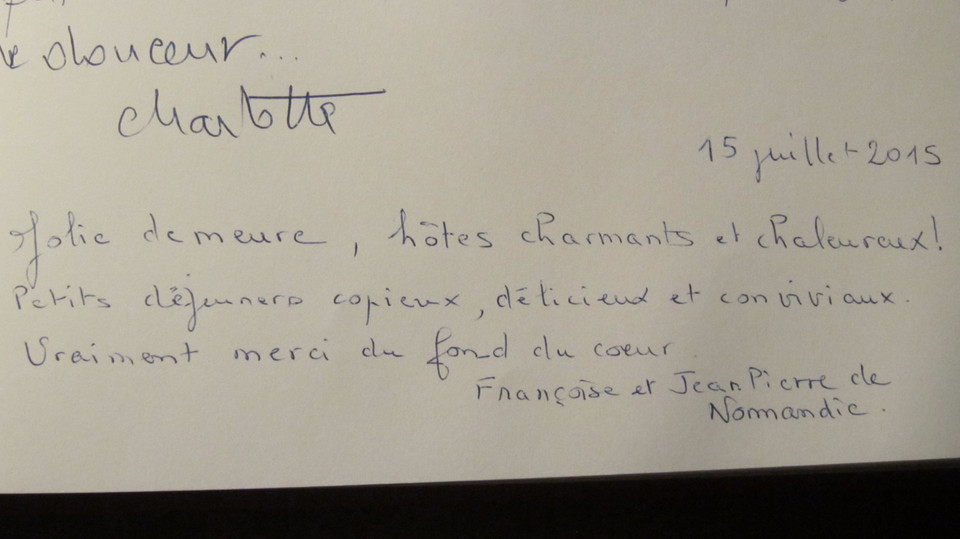 douceur...
Charlotte
15 juillet 2015
Jolie demeure, hôtes charmants et chaleureux!
Petits déjeuners copieux, délicieux et conviviaux.
Vraiment merci du fond du coeur.
Françoise et Jean Pierre de
Normandie.